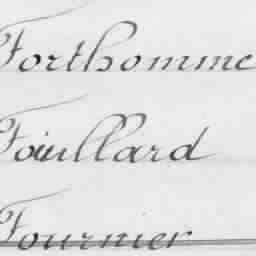 Forthomme
Fouillard
Fournier